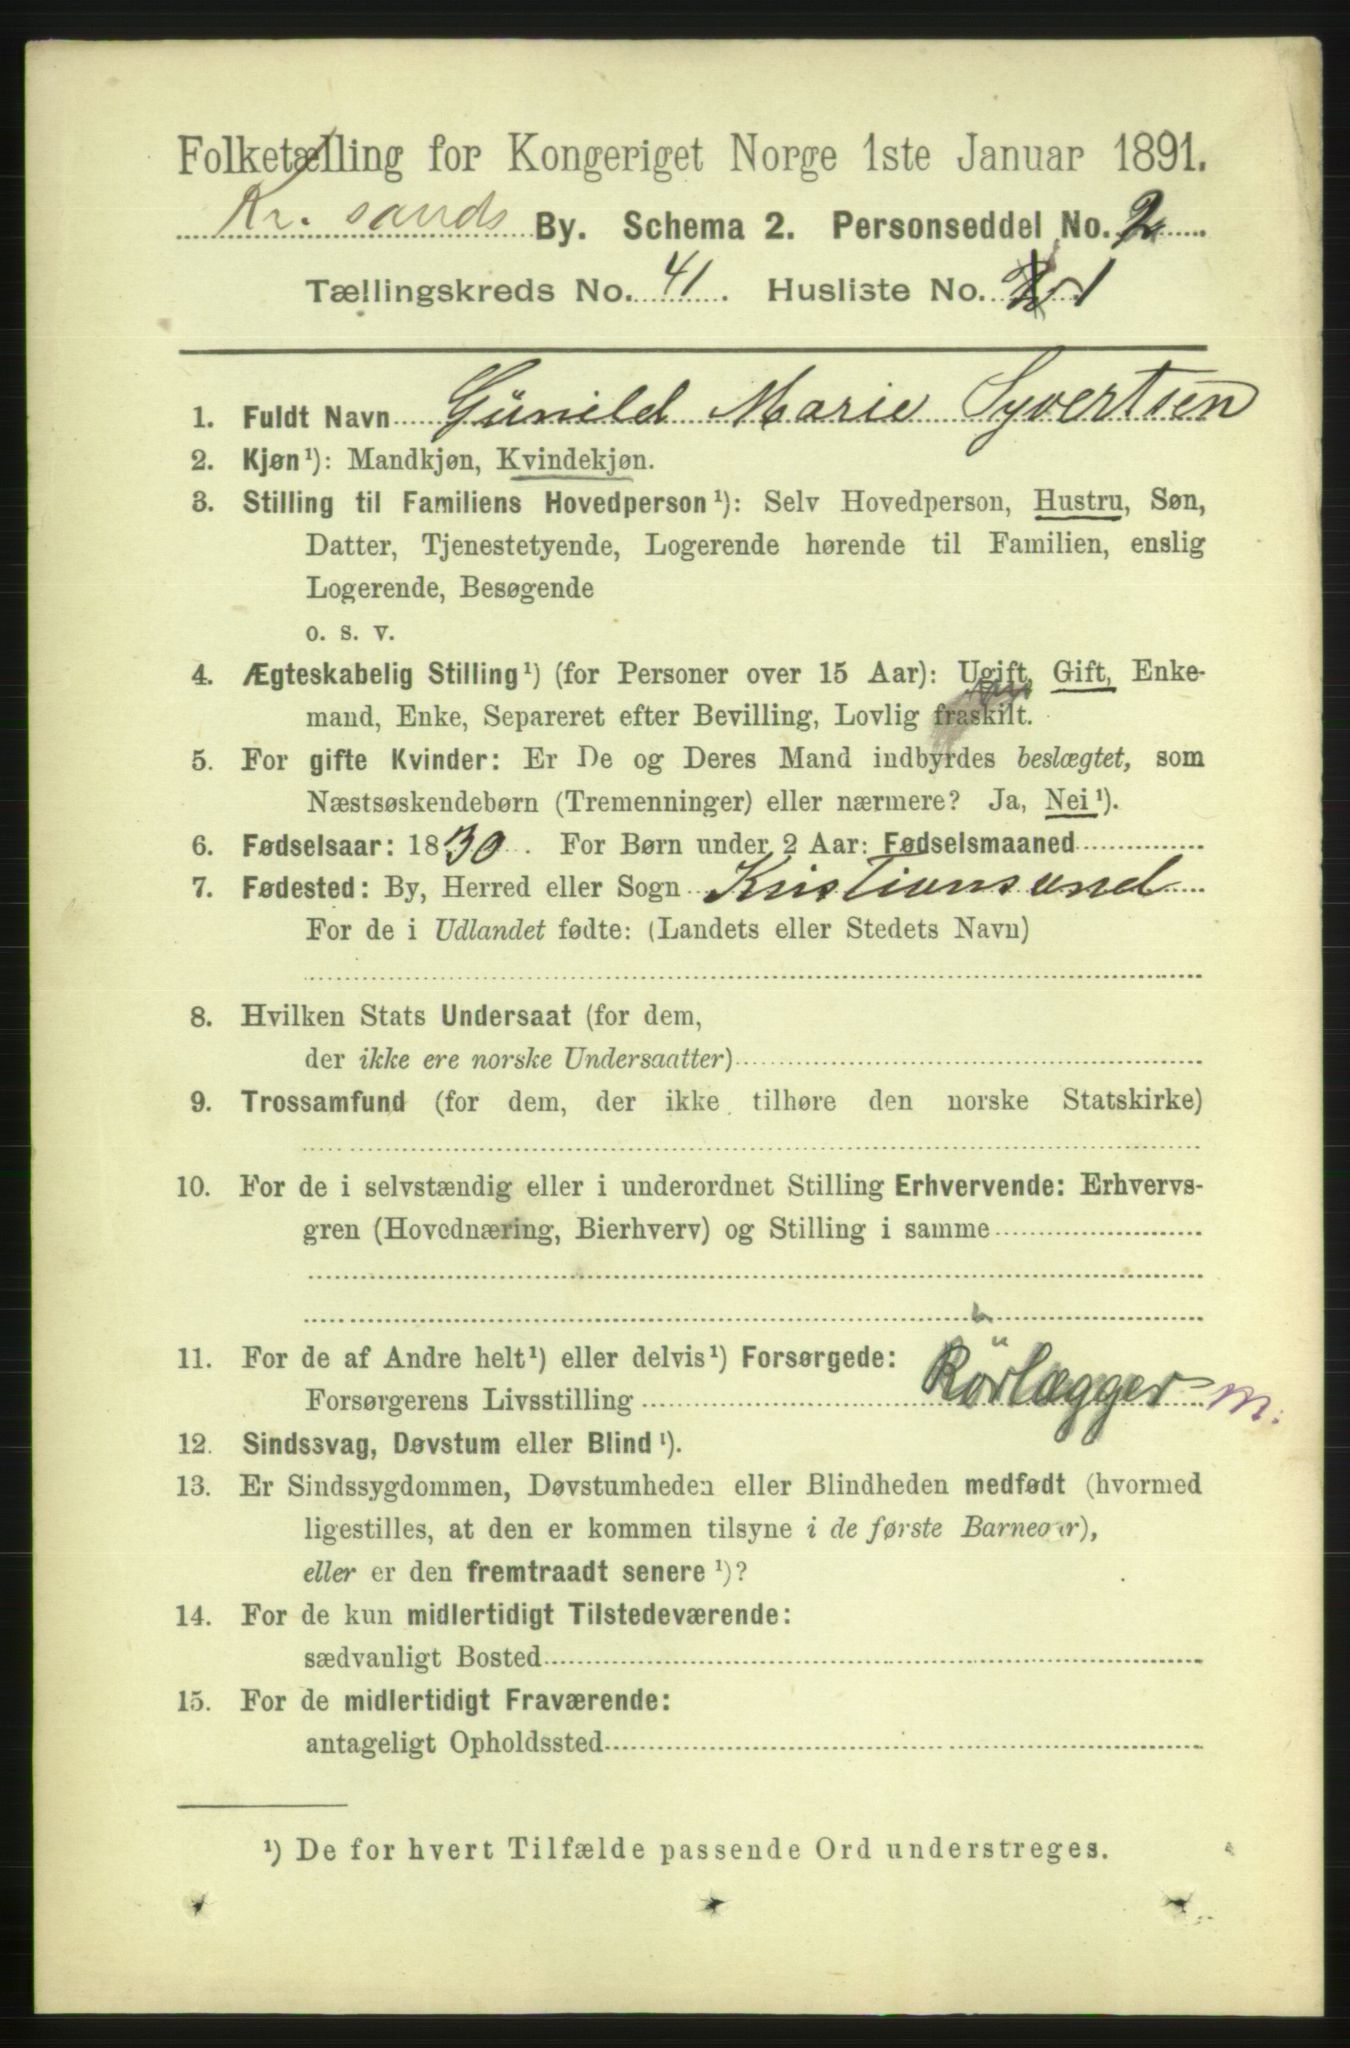 Folketælling for Kongeriget Norge 1ste Januar 1891.
Kr. sands By. Schema 2. Personseddel No. 2
Tællingskreds No. 41. Husliste No. 1
1. Fuldt Navn Günild Marie Syvertsen
2. Kjøn¹): Mandkjøn, Kvindekjøn.
3. Stilling til Familiens Hovedperson¹): Selv Hovedperson, Hustru, Søn,
Datter, Tjenestetyende, Logerende hørende til Familien, enslig
Logerende, Besøgende
o. s. v.
4. Ægteskabelig Stilling¹) (for Personer over 15 Aar): Ugift, Gift, Enke-
mand, Enke, Separeret efter Bevilling, Lovlig fraskilt.
5. For gifte Kvinder: Er De og Deres Mand indbyrdes beslægtet, som
Næstsøskendebørn (Tremenninger) eller nærmere? Ja, Nei¹).
6. Fødselsaar: 1830. For Børn under 2 Aar: Fødselsmaaned
7. Fødested: By, Herred eller Sogn Kristiansand
For de i Udlandet fødte: (Landets eller Stedets Navn)
8. Hvilken Stats Undersaat (for dem,
der ikke ere norske Undersaatter)
9. Trossamfund (for dem, der ikke tilhøre den norske Statskirke)
10. For de i selvstændig eller i underordnet Stilling Erhvervende: Erhvervs-
gren (Hovednæring, Bierhverv) og Stilling i samme
11. For de af Andre helt¹) eller delvis¹) Forsørgede:
Forsørgerens Livsstilling Rörlægger m.
12. Sindssvag, Døvstum eller Blind¹).
13. Er Sindssygdommen, Døvstumheden eller Blindheden medfødt (hvormed
ligestilles, at den er kommen tilsyne i de første Barneaar),
eller er den fremtraadt senere¹)?
14. For de kun midlertidigt Tilstedeværende:
sædvanligt Bosted
15. For de midlertidigt Fraværende:
antageligt Opholdssted
¹) De for hvert Tilfælde passende Ord understreges.